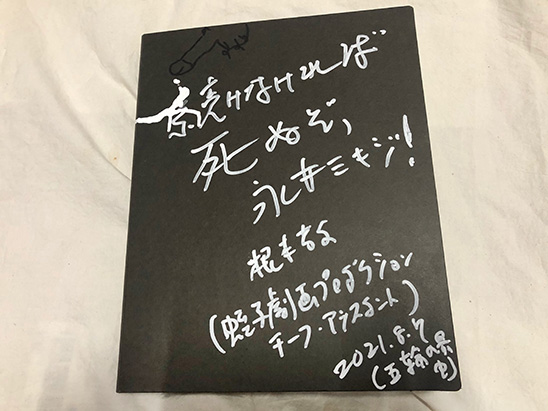 続けなければ
死ぬぞ、
永井ミキジ!
根本敬
(蛭子劇画プロダクション
チーフ・アシスタント)
2021.8.7
(五輪の最中)